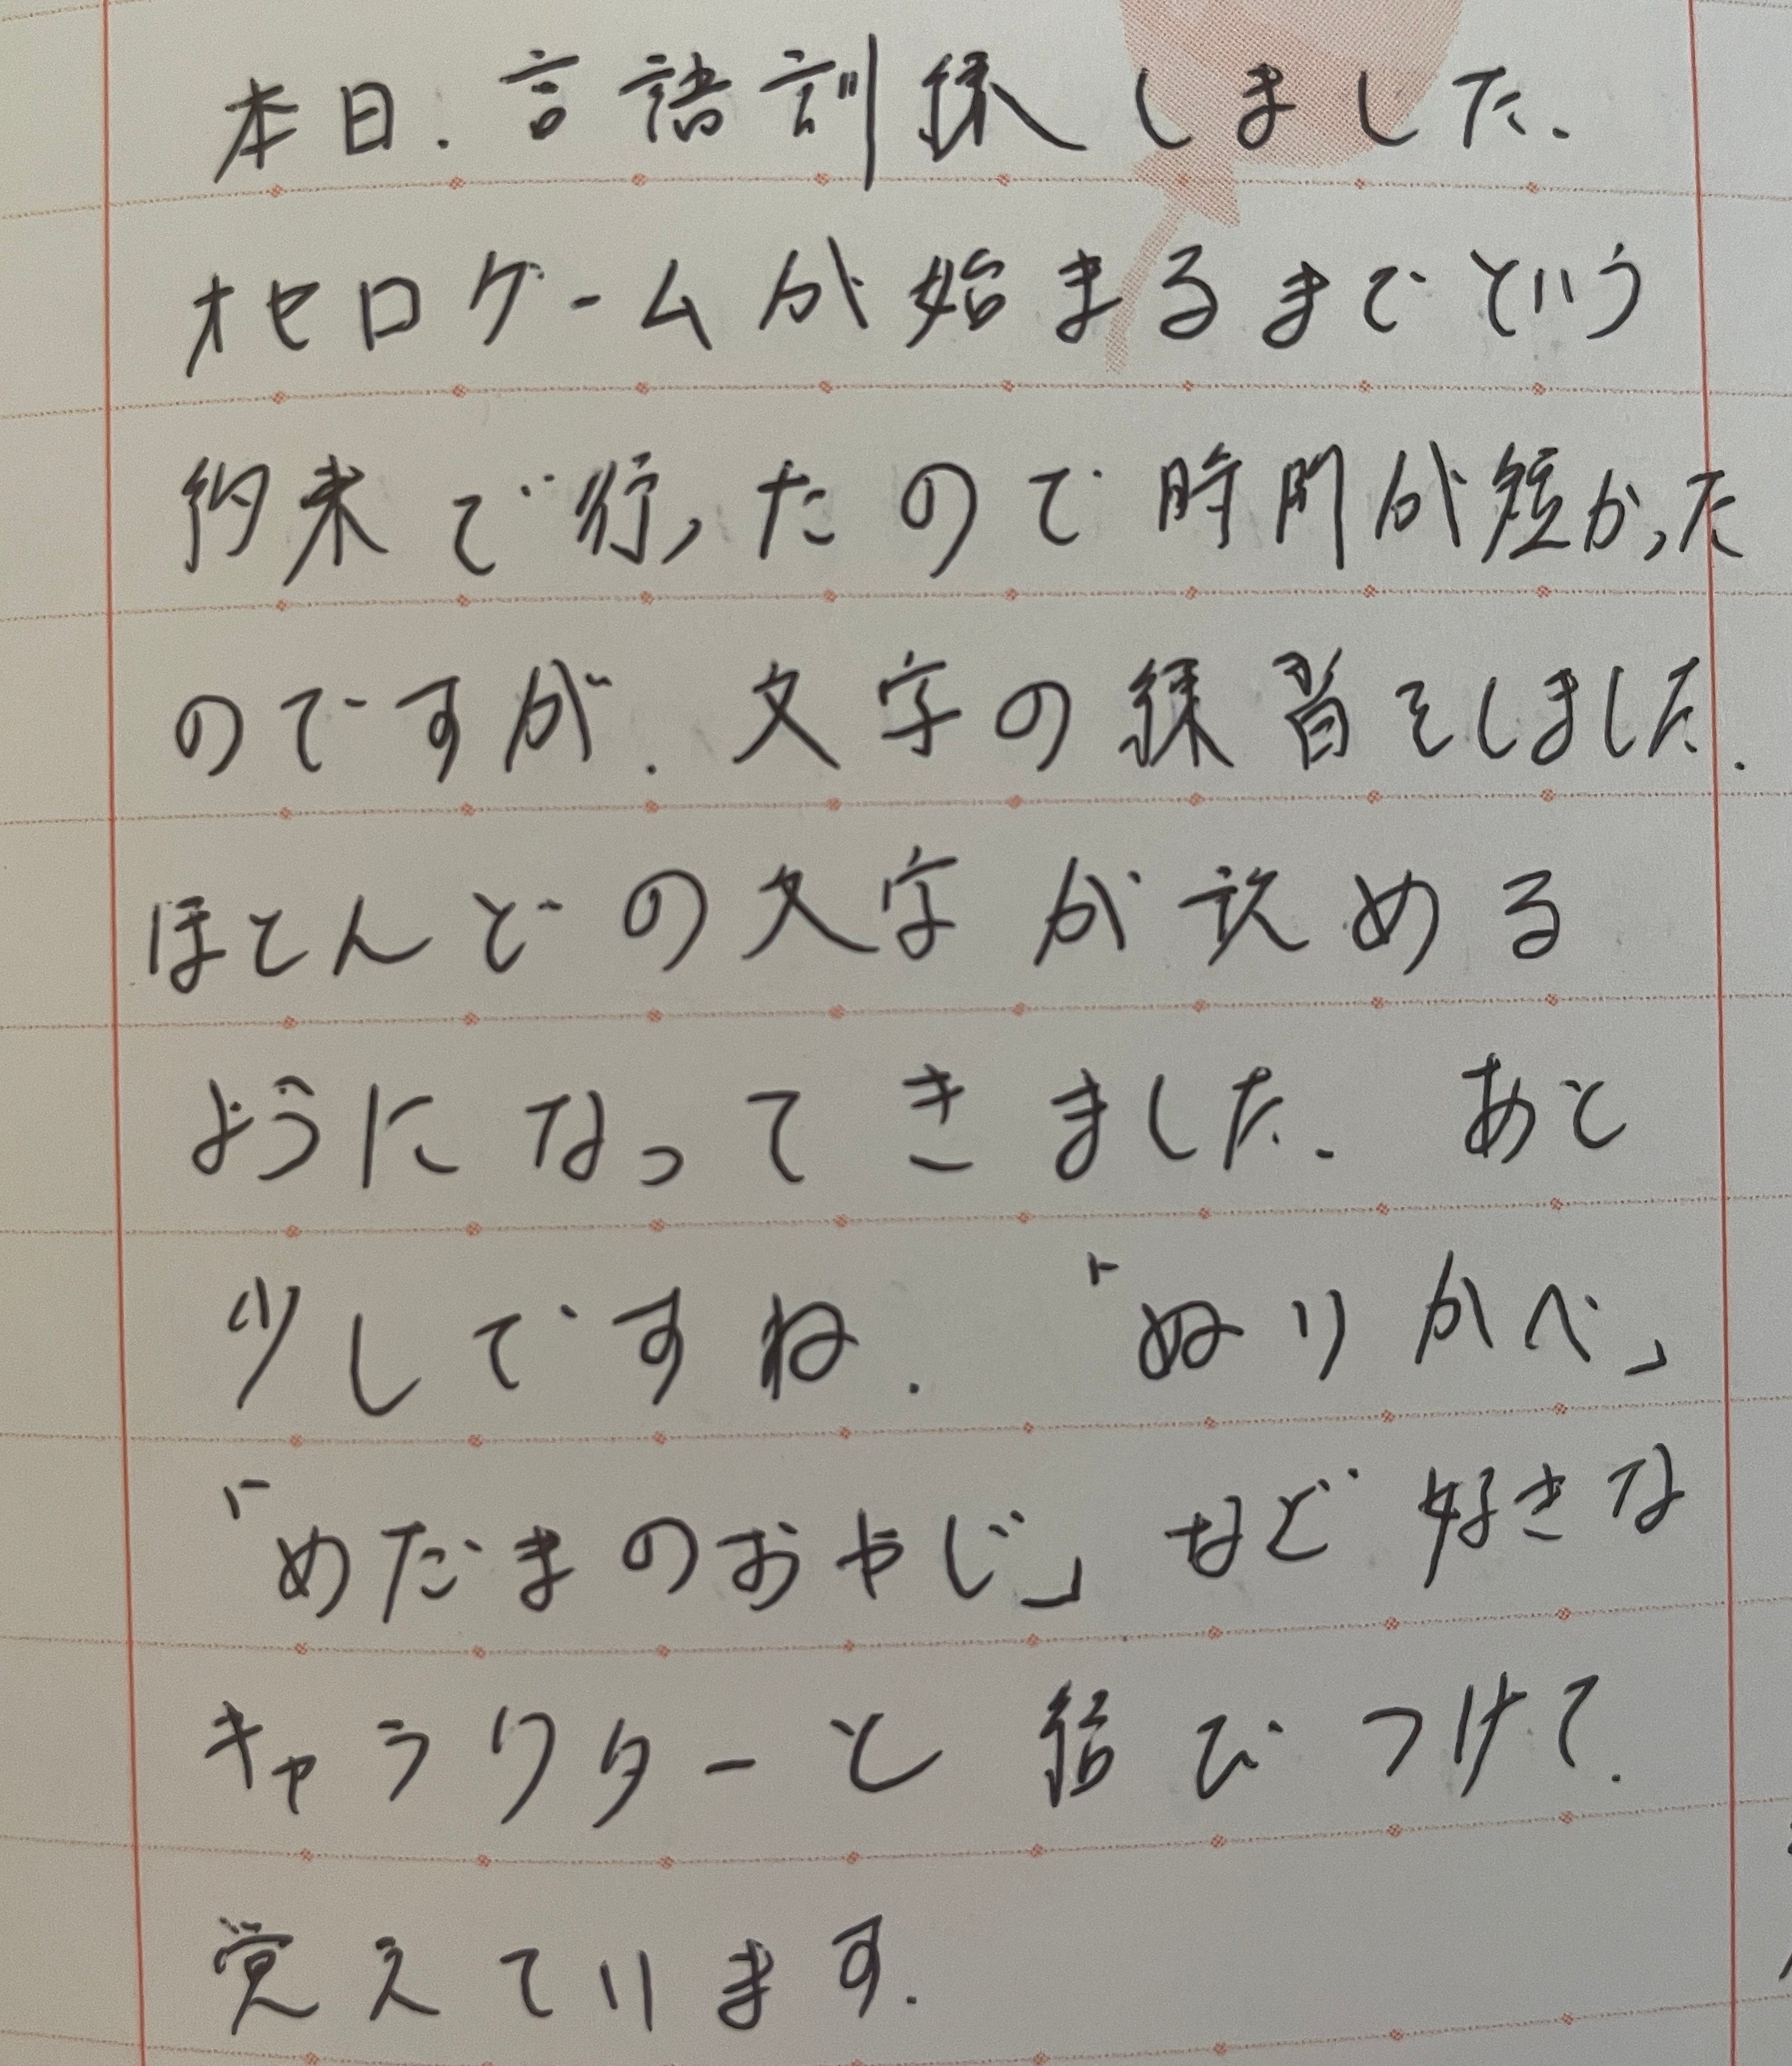 本日.言語訓練しました.
オセロゲームが始まるまでという
約束で行ったので時間が短かった
のですが.文字の練習をしました.
ほとんどの文字が読める
ようになってきました.あと
少しですね.「ぬりかべ」
「めだまのおやじ」など好きな
キャラクターと結びつけて.
覚えています.